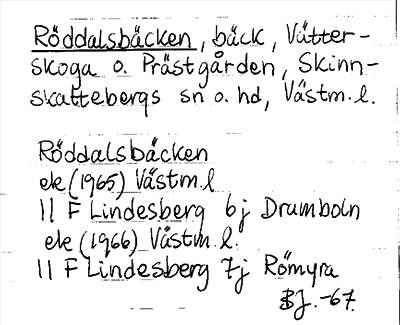 Röddalsbäcken, bäck, Vätter-
skoga o. Prästgården, Skinn-
skattebergs sn o. hd, Västm. l.
Röddalsbäcken
ek (1965) Västm. l
11 F Lindesberg 6j Dramboln
ek (1966) Västm. l.
11 F Lindesberg 7j Römyra
BJ. -67.